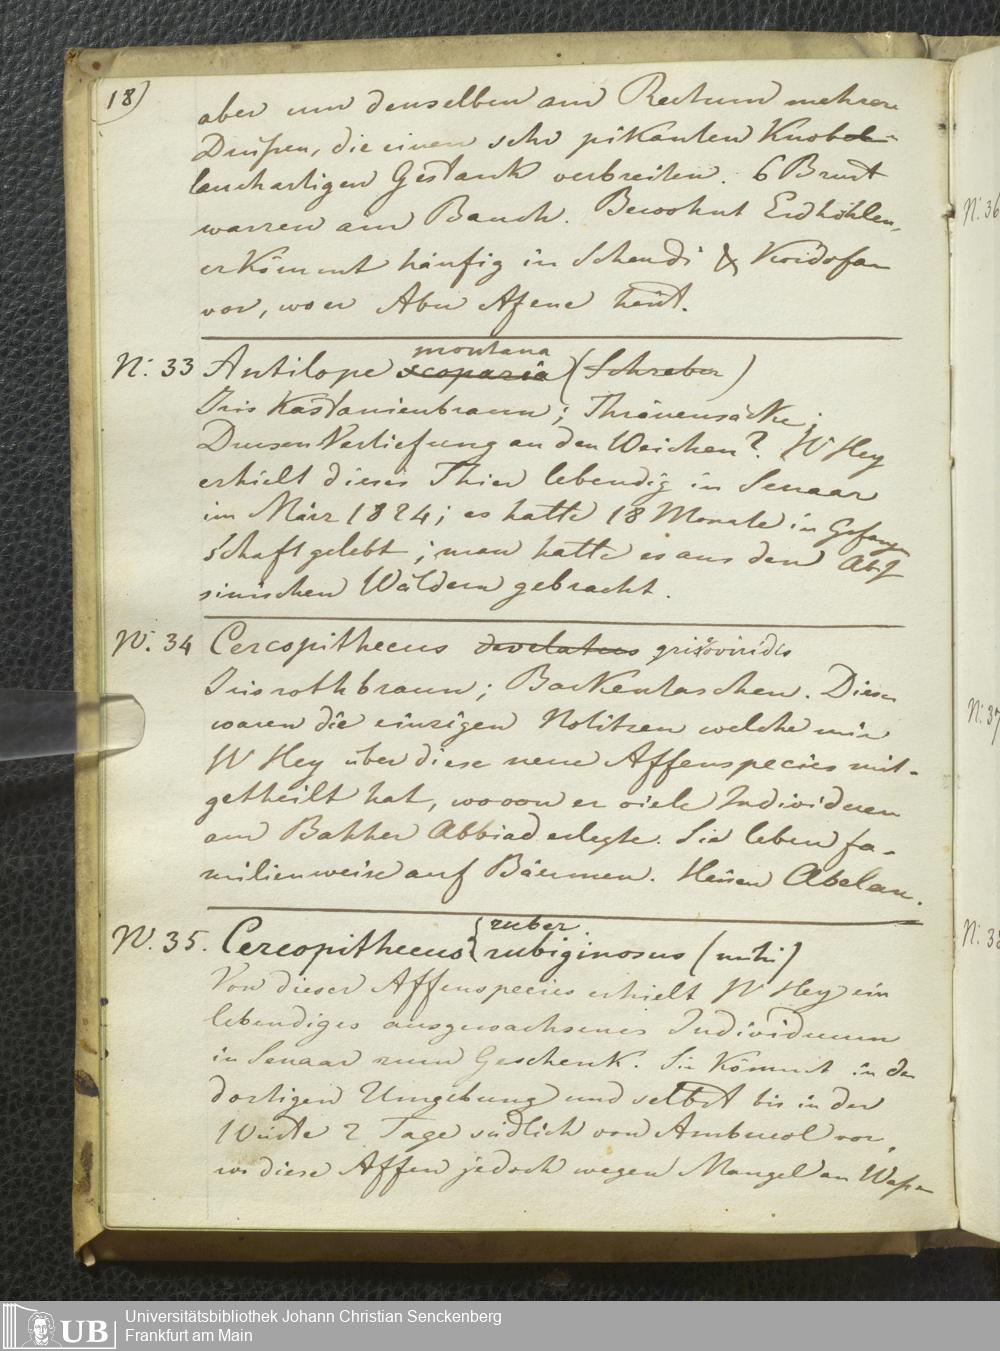 18)
aber um denselben am Rectum mehrere
Drüsen, die einen sehr pikanten Knob-
lauchartigen Gestank verbreiten. 6 Brust
warzen am Bauch. Bewohnt Erdhöhlen,
er kömmt häufig in Schendi & Kordofan
vor, wo er Abu Afene heist.
N: 33 Antilope scoparia montana (Schreber)
Iris Kastanienbraun; Thränensäcke;
Drusen Vertiefung an den Weichen? H Hey
erhielt dieses Thier lebendig in Senaar
im März 1824; es hatte 18 Monate in Gefangen
schaft gelebt; man hatte es aus den Abÿ
sinischen Wäldern gebracht.
N: 34 Cercopithecus griseoviridis
Iris rothbraun; Backentaschen. Dieses
waren die einzigen Notitzen welche mir
H Hey über diese neue Affenspecies mit-
getheilt hat, wovon er viele Individuen
am Bahher Abbiad erlegte. Sie leben fa-
milienweise auf Bäumen. Heisen Abelan.
N. 35. Cercopithecus { ruber
rubiginosus (mihi)
Von dieser Affenspecies erhielt H Hey ein
lebendiges ausgewachsenes Individuum
in Senaar zum Geschenk. Sie kömmt in der
dortigen Umgebung und selbst bis in der
Wüste 2 Tage südlich von Ambucol vor,
wo diese Affen jedoch wegen Mangel an Wasser
N: 36
N: 37
N: 38
UB
Universitätsbibliothek Johann Christian Senckenberg
Frankfurt am Main